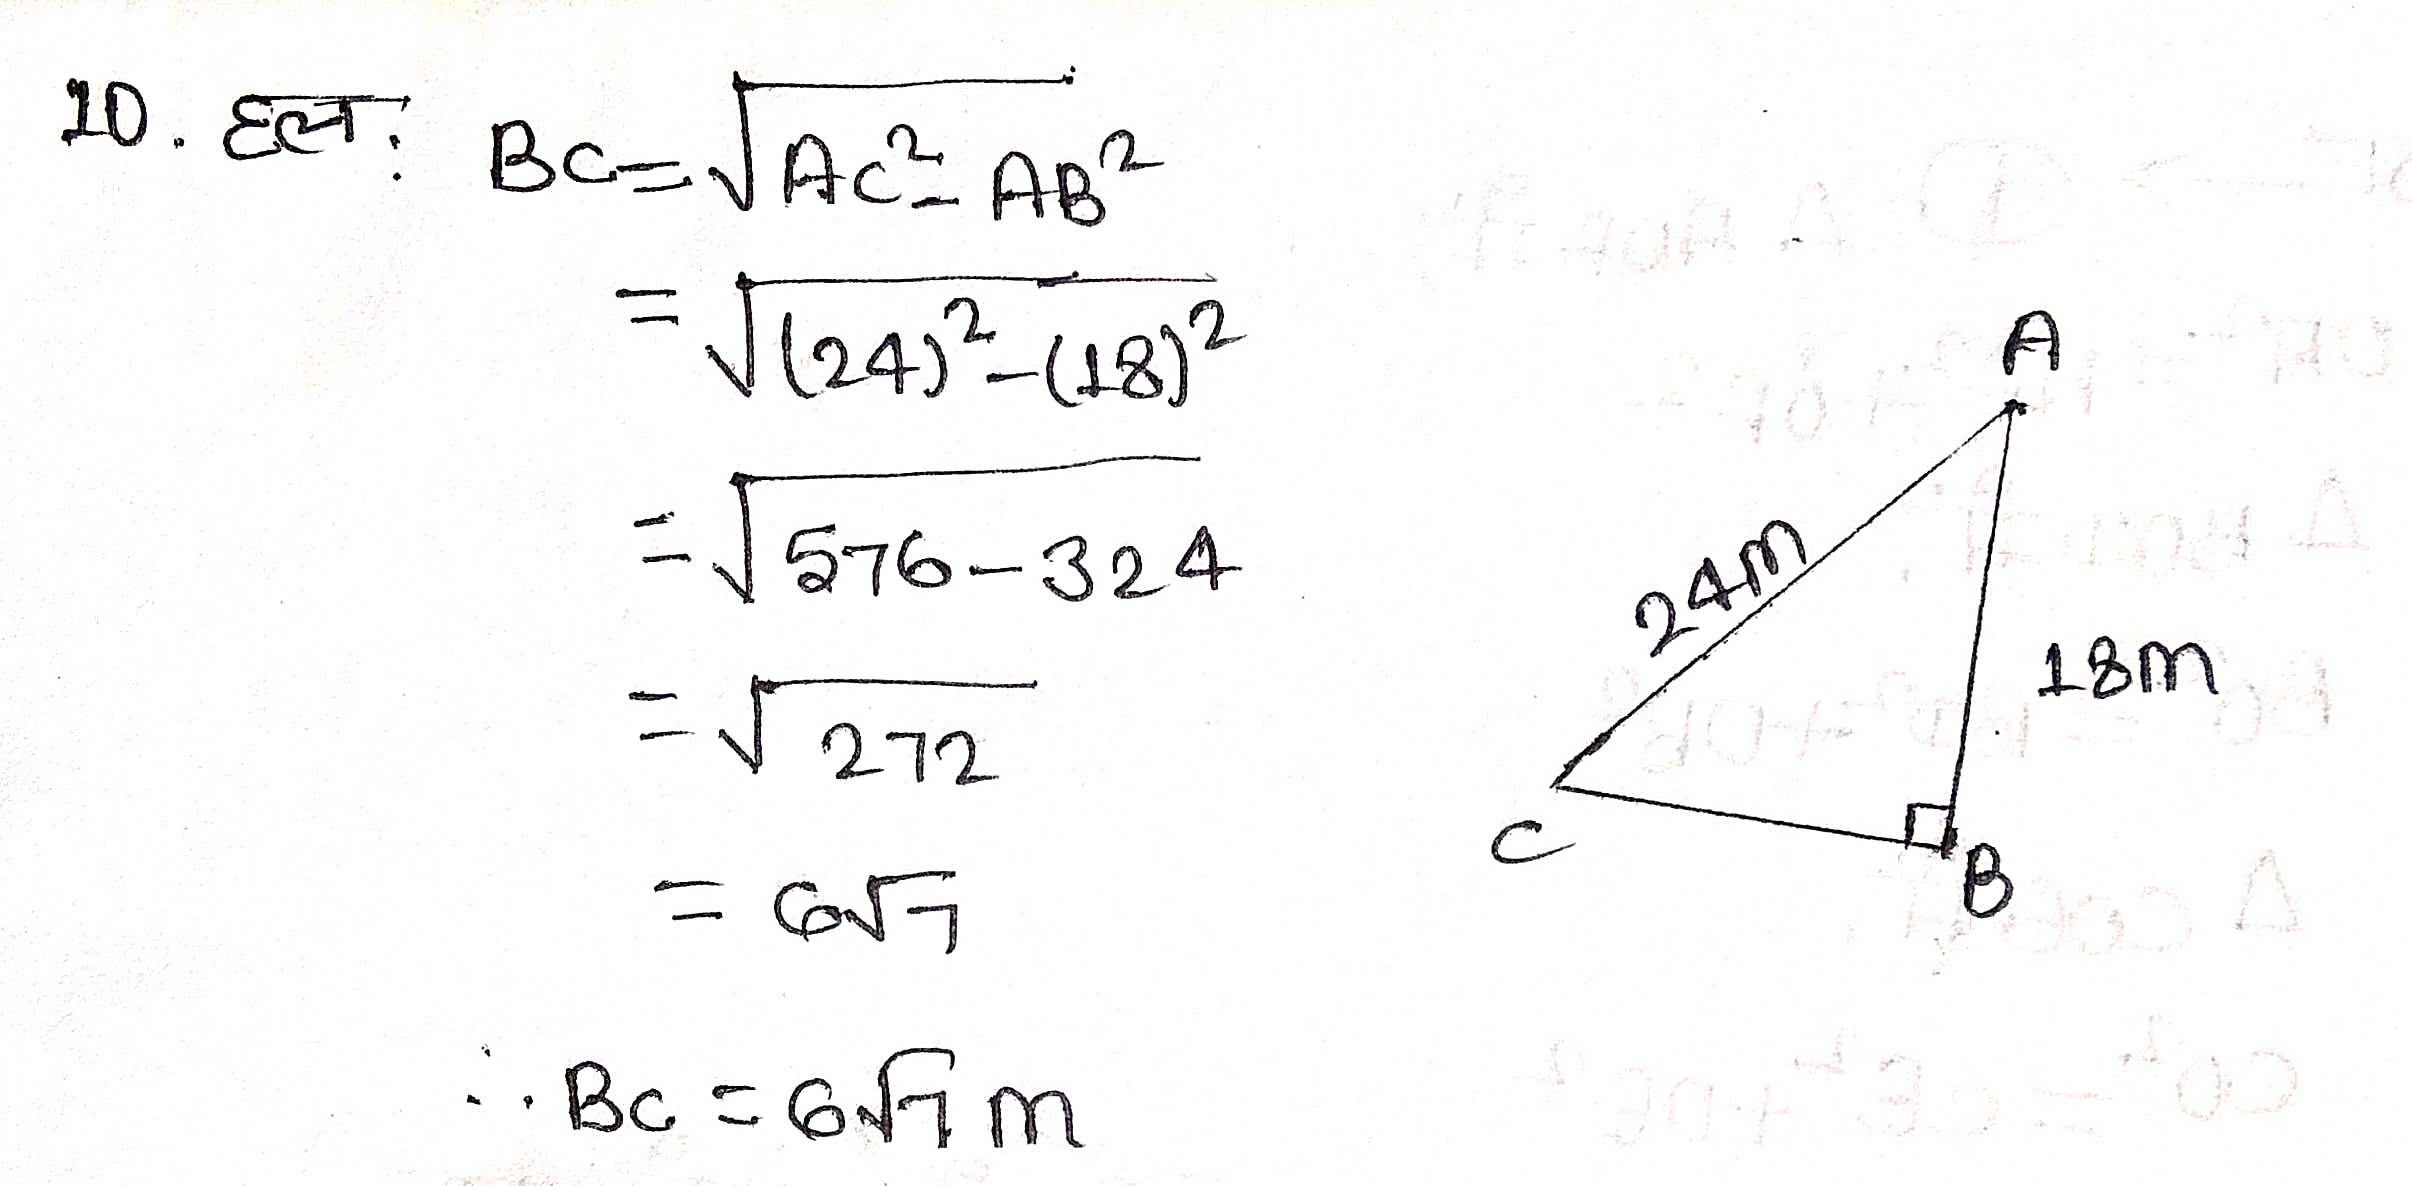 10. हल: BC=√AC²-AB²
=√(24)²-(18)²
=√576-324
=√272
=6√7
∴ BC=6√7 m
A
24m
18m
C
B